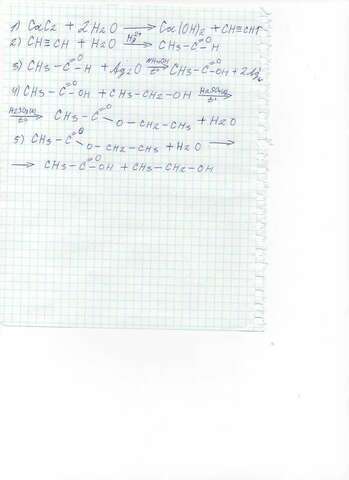 1) CaC2 + 2H2O → Ca(OH)2 + CH≡CH↑
2) CH≡CH + H2O —Hg2+→ CH3-C(=O)-H
3) CH3-C(=O)-H + Ag2O —NH4OH, t°→ CH3-C(=O)-OH + 2Ag↓
4) CH3-C(=O)-OH + CH3-CH2-OH —H2SO4(к), t°→
—H2SO4(к), t°→ CH3-C(=O)-O-CH2-CH3 + H2O
5) CH3-C(=O)-O-CH2-CH3 + H2O →
→ CH3-C(=O)-OH + CH3-CH2-OH